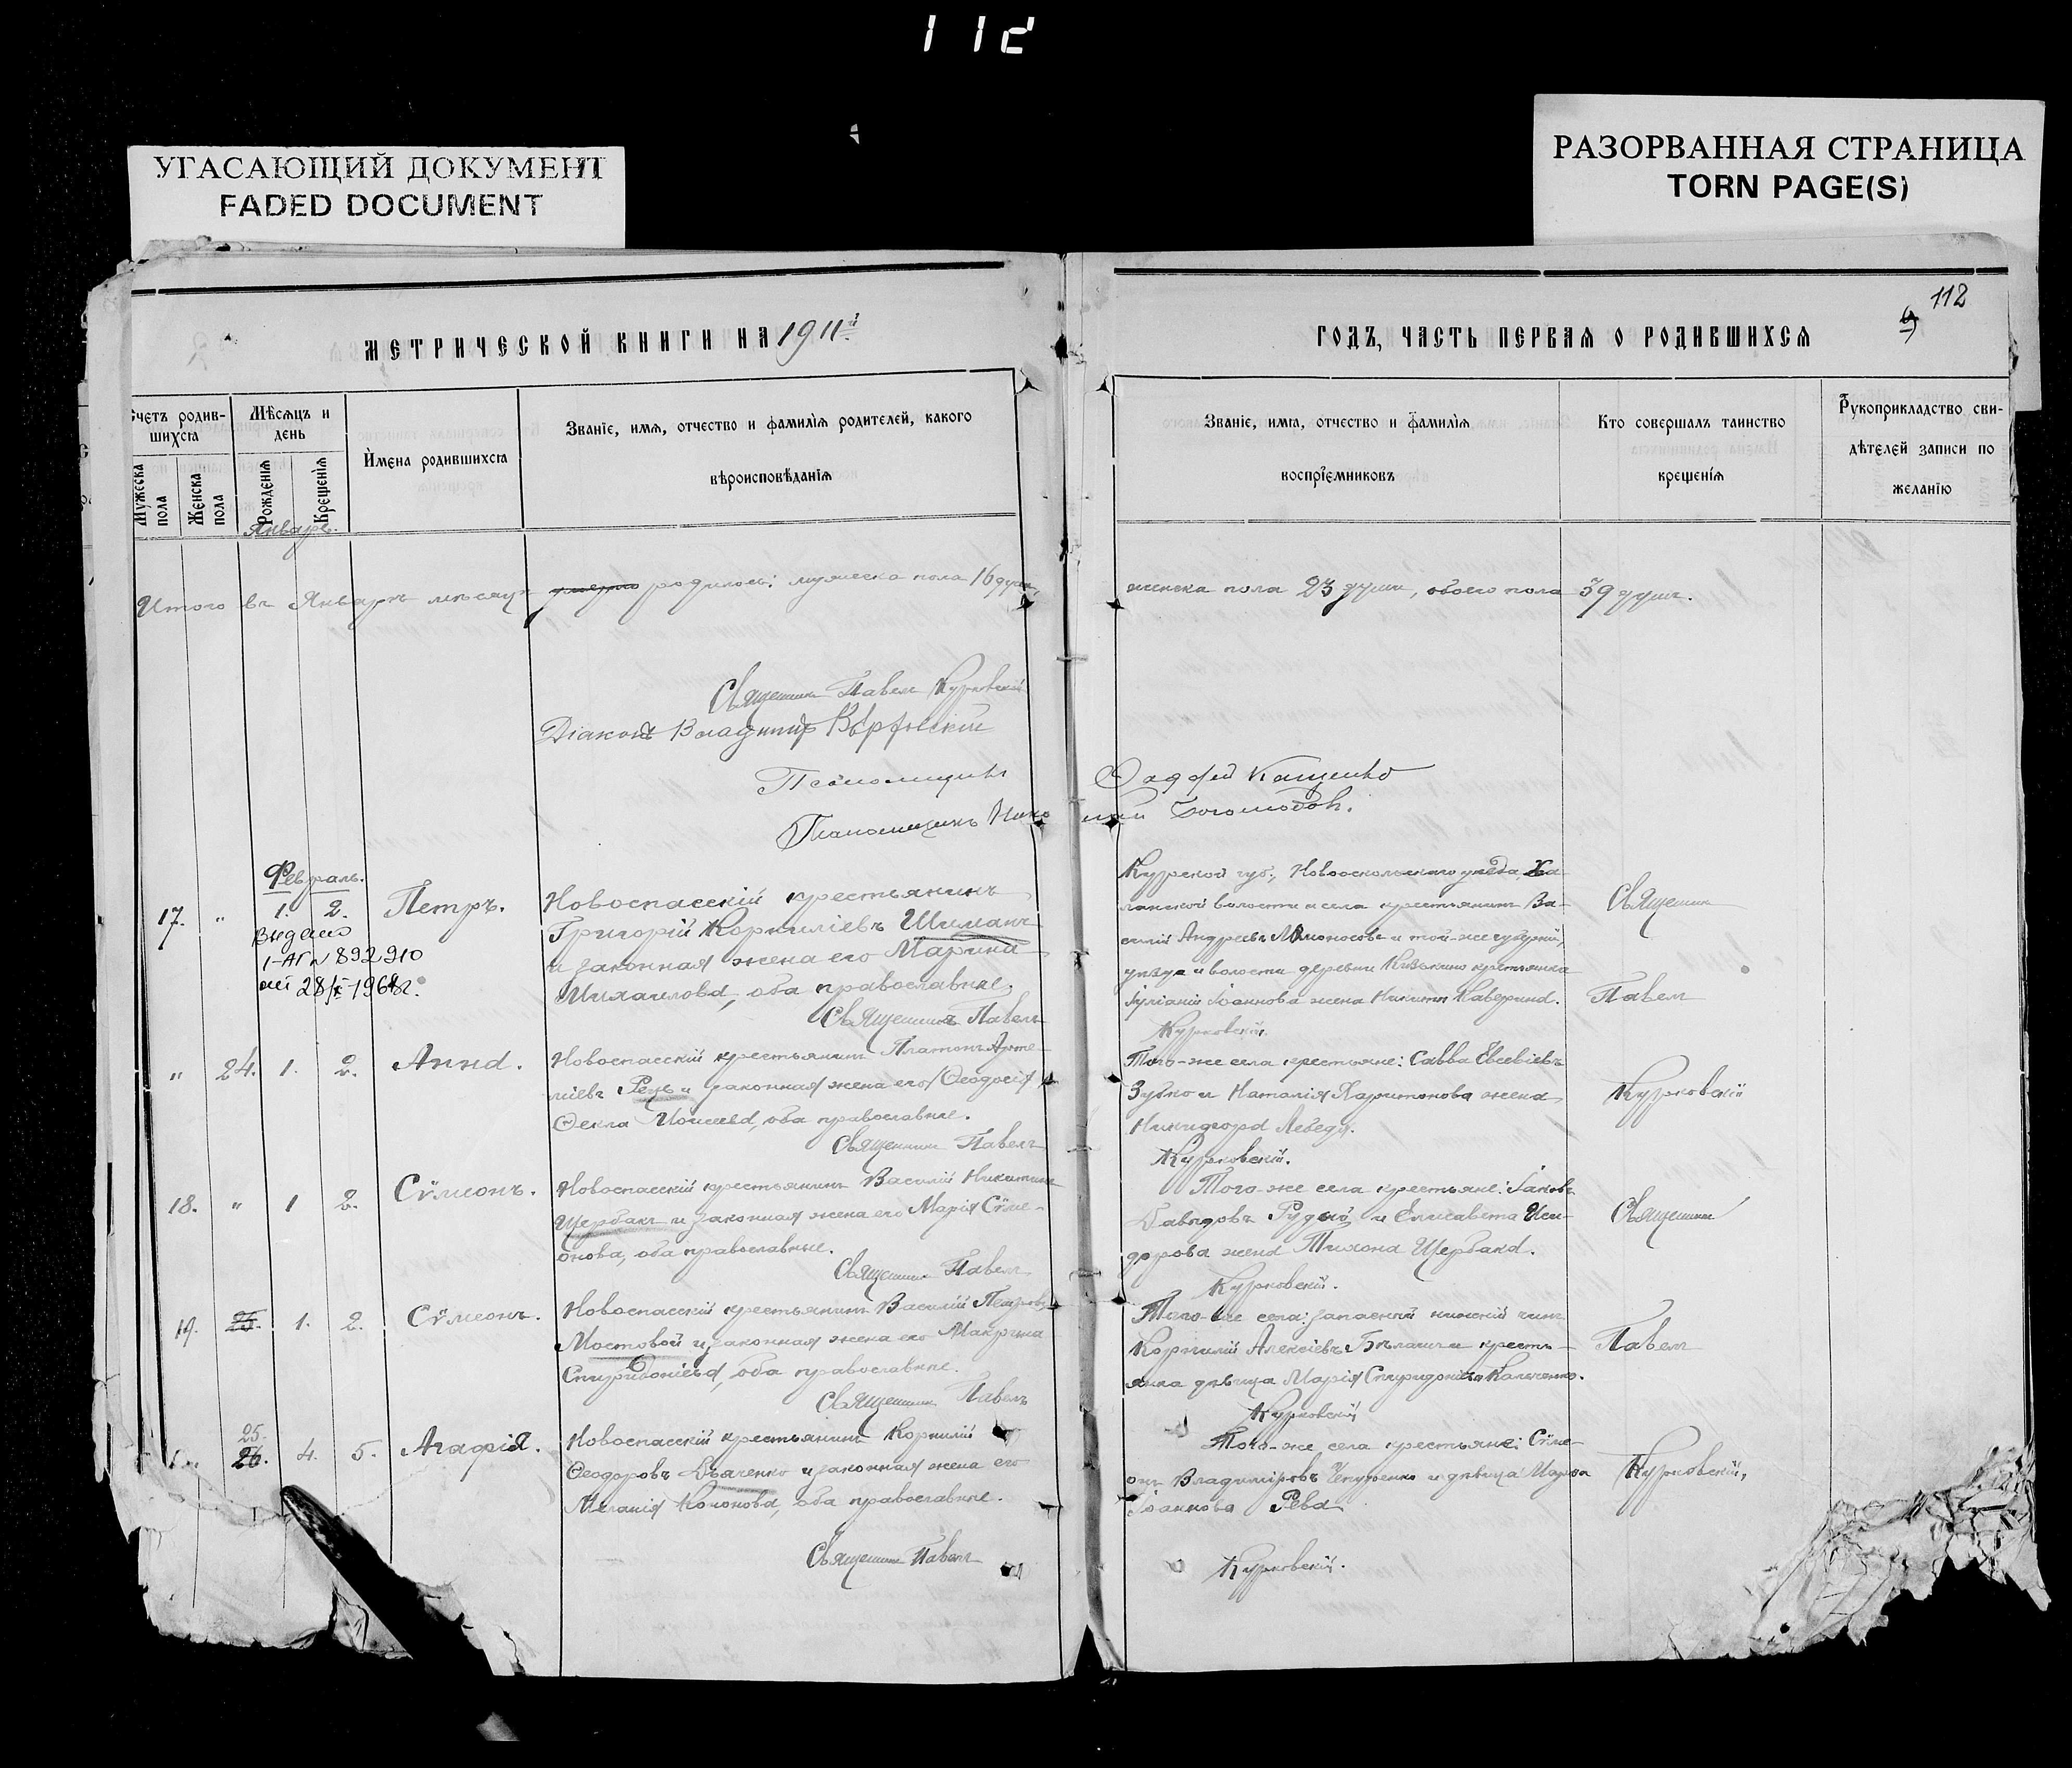 112
УГАСАЮЩИЙ ДОКУМЕНТ
FADED DOCUMENT
РАЗОРВАННАЯ СТРАНИЦА
TORN PAGE(S)
112
МЕТРИЧЕСКОЙ КНИГИ НА 1911й
ГОДЪ, ЧАСТЬ ПЕРВАЯ О РОДИВШИХСЯ
Счетъ родив-
шихся
Мужеска пола
Женска пола
Мѣсяцъ и
день
Рожденія
Крещенія
Имена родившихся
Званіе, имя, отчество и фамилія родителей, какого
вѣроисповѣданія
Званіе, имя, отчество и фамилія
воспріемниковъ
Кто совершалъ таинство
крещенія
Рукоприкладство сви-
дѣтелей записи по
желанію
Январь.
Итого въ Январѣ мѣсяцѣ родилось: мужеска пола 16 душъ, женска пола 23 души, обоего пола 39 душъ.
Священникъ Павелъ Курковскій
Діаконъ Владиміръ
Псаломщикъ Фаддей Кащенко
Псаломщикъ Николай Богомолов.
Февраль.
17. " 1. 2. Петръ.
Выдано
892910
28/X-1968г.
Новоспасскій крестьянинъ
Григорій Корниліевъ Шиманъ
и законная жена его Марина
Михаилова, оба православные.
Священникъ Павелъ Курковскій.
Курской губ., Новооскольскаго уѣзда, Ха-
ланской волости и села крестьянинъ Ва-
силій Андреевъ Ломоносовъ и той-же губерніи,
уѣзда и волости деревни крестьянка
Іуліанія Іоаннова жена Никиты Каверина.
Священникъ
Павелъ
" 24. 1. 2. Анна.
Новоспасскій крестьянинъ Платонъ Арте-
міевъ и законная жена его Ѳеодосія
Ѳекла оба православные.
Священникъ Павелъ Курковскій.
Того-же села крестьяне: Савва Евсевіевъ
Зубко и Наталія Харитонова жена
Никифора Лебедя.
Курковскій
18. " 1 2. Сѵмеонъ.
Новоспасскій крестьянинъ Василій Никитинъ
Щербакъ и законная жена его Марія Сѵме-
онова, оба православные.
Священникъ Павелъ Курковскій.
Того-же села крестьяне: Іаковъ
Давидовъ Рудый и Елисавета Иси-
дорова жена Тихона Щербака.
Священникъ
19. 25. 1. 2. Сѵмеонъ.
Новоспасскій крестьянинъ Василій Петровъ
Мостовой и законная жена его Макрина
Спиридоніева, оба православные.
Священникъ Павелъ Курковскій
Того-же села: запасный нижній чинъ
Корнилій Алексіевъ и кресть-
янка дѣвица Марія Спиридоніева Кальченко.
Павелъ
25.
26. 4. 5. Агафія.
Новоспасскій крестьянинъ Корнилій
Ѳеодоровъ Дьяченко и законная жена его
Меланія Кононова, оба православные.
Священникъ Павелъ Курковскій.
Того-же села крестьяне: Сѵме-
онъ Владиміровъ и дѣвица Марѳа
Іоаннова Рева
Курковскій,